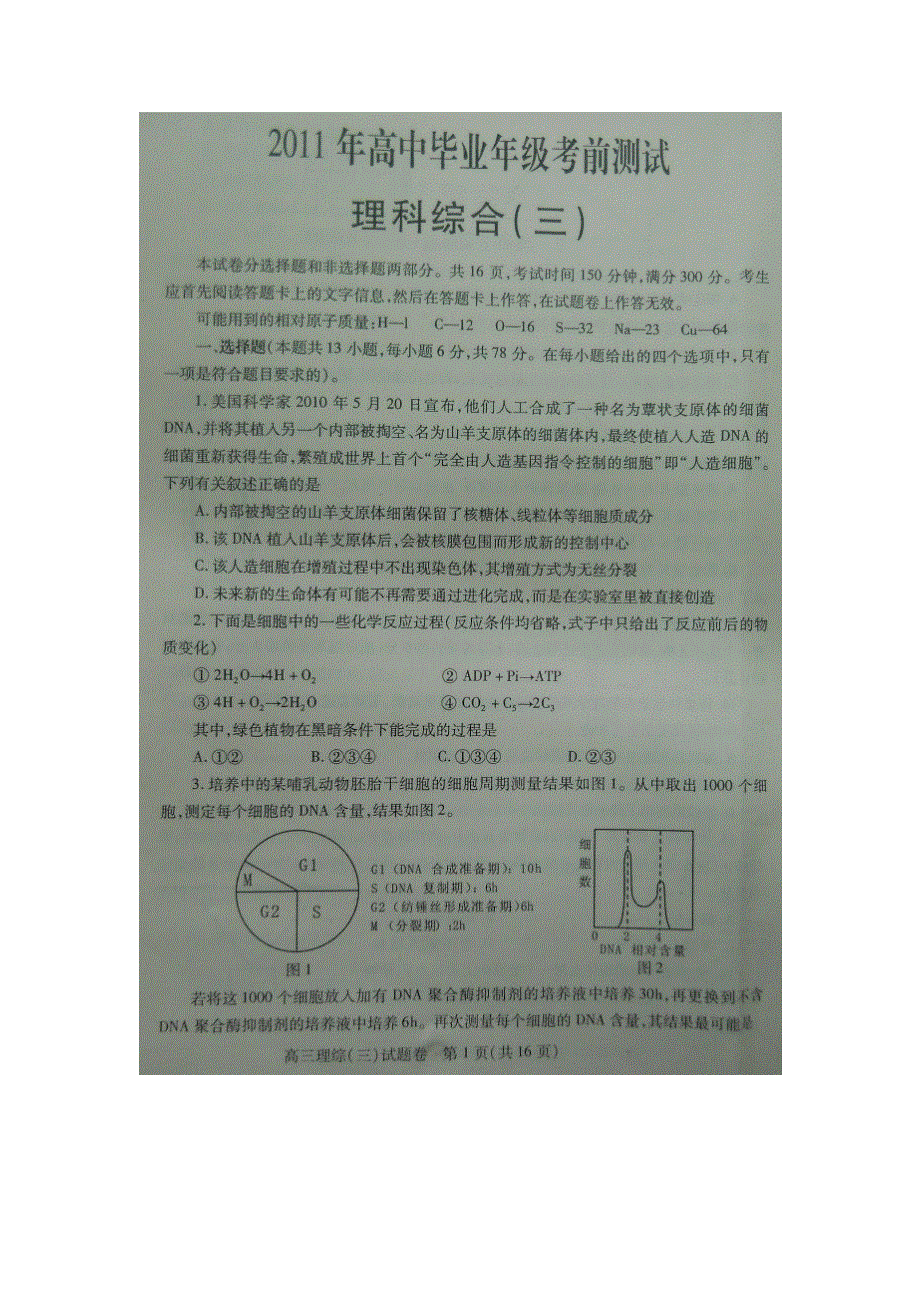 2011 年高中毕业年级考前测试
理科综合(三)
本试卷分选择题和非选择题两部分。共 16 页,考试时间 150 分钟,满分 300 分。考生
应首先阅读答题卡上的文字信息,然后在答题卡上作答,在试题卷上作答无效。
可能用到的相对原子质量:H—1 C—12 O—16 S—32 Na—23 Cu—64
一、选择题(本题共 13 小题,每小题 6 分,共 78 分。在每小题给出的四个选项中,只有
一项是符合题目要求的)。
1. 美国科学家 2010 年 5 月 20 日宣布,他们人工合成了一种名为蕈状支原体的细菌
DNA,并将其植入另一个内部被掏空、名为山羊支原体的细菌体内,最终使植入人造 DNA 的
细菌重新获得生命,繁殖成世界上首个“完全由人造基因指令控制的细胞”即“人造细胞”。
下列有关叙述正确的是
A. 内部被掏空的山羊支原体细菌保留了核糖体、线粒体等细胞质成分
B. 该 DNA 植入山羊支原体后,会被核膜包围而形成新的控制中心
C. 该人造细胞在增殖过程中不出现染色体,其增殖方式为无丝分裂
D. 未来新的生命体有可能不再需要通过进化完成,而是在实验室里被直接创造
2. 下面是细胞中的一些化学反应过程(反应条件均省略,式子中只给出了反应前后的物
质变化)
① 2H₂O→4H + O₂ ② ADP + Pi→ATP
③ 4H + O₂→2H₂O ④ CO₂ + C₅→2C₃
其中,绿色植物在黑暗条件下能完成的过程是
A. ①② B. ②③④ C. ①③④ D. ②③
3. 培养中的某哺乳动物胚胎干细胞的细胞周期测量结果如图 1。从中取出 1000 个细
胞,测定每个细胞的 DNA 含量,结果如图 2。
G1
M
G2 S
G1 (DNA 合成准备期): 10h
S (DNA 复制期): 6h
G2 (纺锤丝形成准备期)6h
M (分裂期) :2h
图 1
细胞数
0 2 4
DNA 相对含量
图 2
若将这 1000 个细胞放入加有 DNA 聚合酶抑制剂的培养液中培养 30h,再更换到不含
DNA 聚合酶抑制剂的培养液中培养 6h。再次测量每个细胞的 DNA 含量,其结果最可能是
高三理综(三)试题卷 第 1 页(共 16 页)